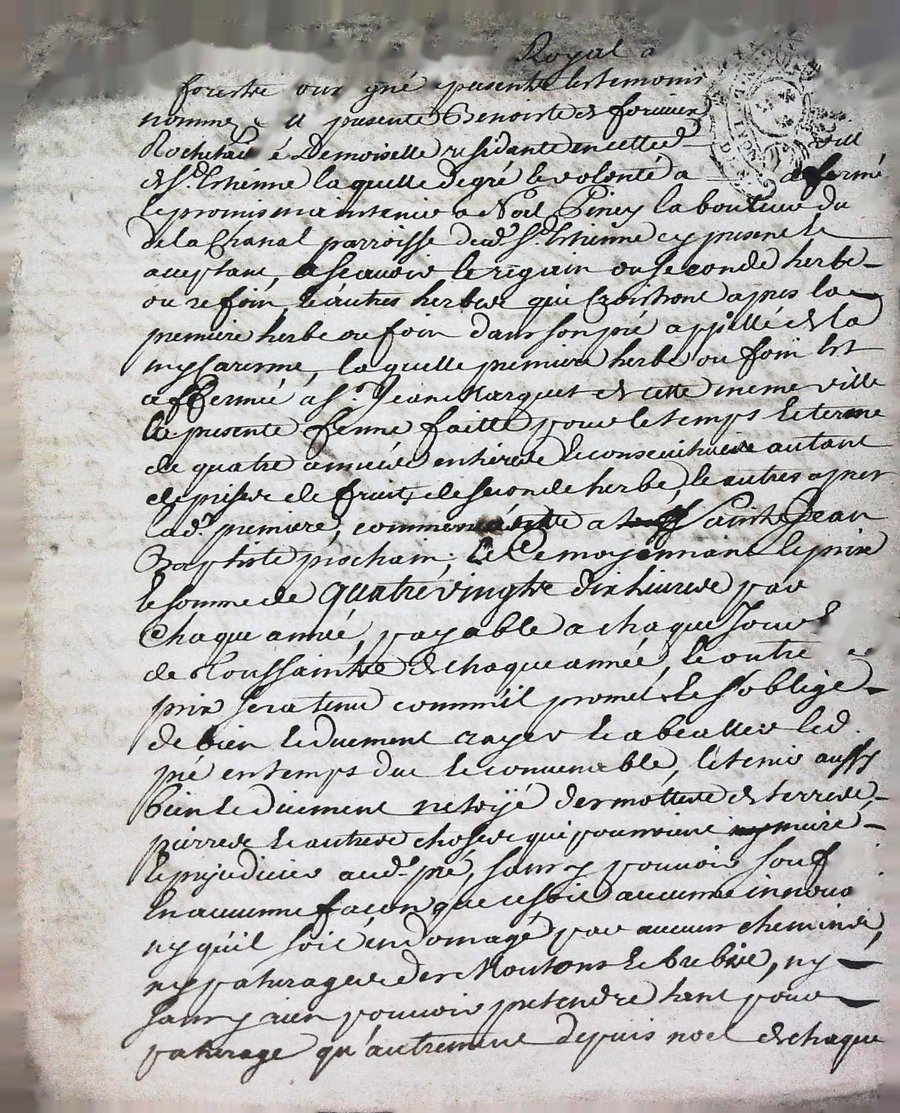 Royal a
forestz soussigné presents les temoins
nommez presente Benoiste de
Rochetail Demoiselle residante en cette d. ville
de St. Etienne laquelle de gré et volonté a affermé
et promis maintenir a Noel Piney laboureur du
de la Chanal parroisse de d. St. Etienne cy present et
acceptant, a scavoir le regain ou seconde herbe
ou refoin et autres herbes qui croistront apres la
premiere herbe ou foin dans son pré appellé de la
laquelle premiere herbe ou foin est
affermée a Sr. Jean Marquet de cette meme ville
La presente ferme faitte pour le temps et terme
de quatre années entieres et consecutives autant
de prises de fruit de seconde herbe et autres apres
lad. premiere, a Saint Jean
Baptiste prochain, et ce moyennant le prix
et somme de quatre vingts dix livres par
chaque année, payable a chaque jour
de Toussaints de chaque année, et outre ce
prix sera tenu comm'il promet et s'oblige
de bien et duement et led.
pré en temps du et convenable, le tenir aussy
bien et duement netoÿé des mottes de terres
pierres et autres choses qui pourroient nuire
et prejudicier aud. pré, sans y pouvoir
en aucunne facon que ce soit aucunne
ny qu'il soit éndomagé par aucuns chemins,
ny paturages des Moutons et brebis, ny
sans y rien pouvoir pretendre tant pour
paturage qu'autrement depuis noel de chaque